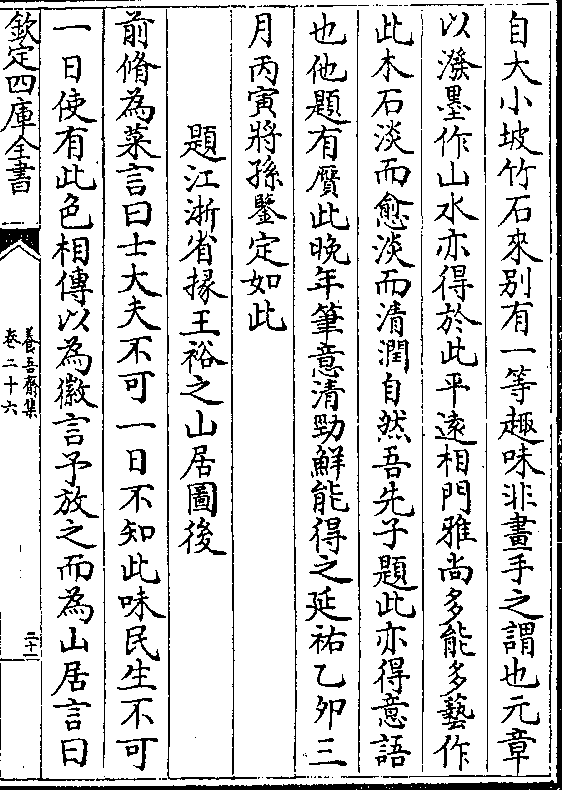 自大小坡竹石來别有一等趣味非畫手之謂也元章
以潑墨作山水亦得於此平逺相門雅尚多能多藝作
此木石淡而愈淡而清潤自然吾先子題此亦得意語
也他題有贗此晩年筆意清勁鮮能得之延祐乙夘三
月丙寅將孫鑒定如此
題江浙省掾王裕之山居圖後
前脩為菜言曰士大夫不可一日不知此味民生不可
一日使有此色相傳以為徽言予放之而為山居言曰
欽定四庫全書
養吾齋集
卷二十六
二十一